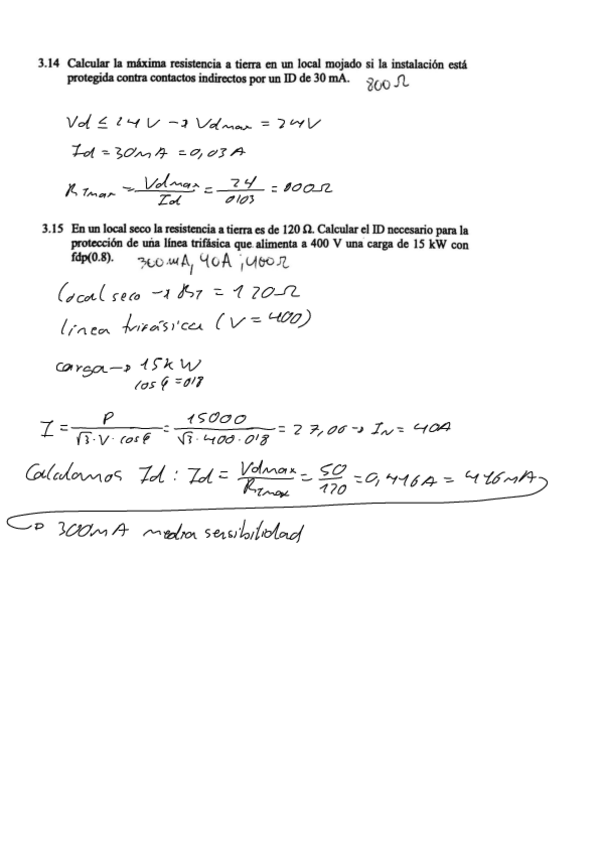 3.14 Calcular la máxima resistencia a tierra en un local mojado si la instalación está
protegida contra contactos indirectos por un ID de 30 mA. 800 Ω
Vd ≤ 24 V → Vdmax = 24V
Id = 30mA = 0,03 A
RTmax = Vdmax / Id = 24 / 0'03 = 800Ω
3.15 En un local seco la resistencia a tierra es de 120 Ω. Calcular el ID necesario para la
protección de una línea trifásica que alimenta a 400 V una carga de 15 kW con
fdp(0.8). 300 mA, 40A ; 400Ω
local seco → RT = 120Ω
línea trifásica (V = 400)
carga → 15kW
cos φ = 0'8
I = P / √3·V·cosφ = 15000 / √3·400·0'8 = 27,06 → IN = 40A
Calculamos Id : Id = Vdmax / RTmax = 50 / 120 = 0,416A = 416mA
→ 300mA media sensibilidad